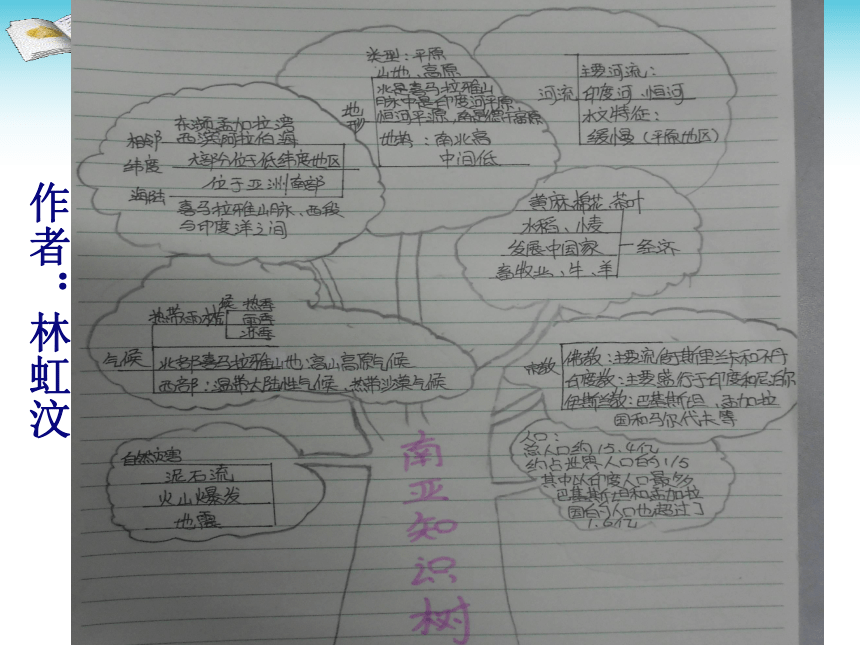 作者：林虹汶
类型：平原
山地、高原
地形
北是喜马拉雅山
脉中是印度河平原、
恒河平源、南是德干高原
地势：南北高
中间低
主要河流：
河流
印度河、恒河
水文特征：
缓慢（平原地区）
相邻
东濒孟加拉湾
西滨阿拉伯海
纬度
大部分位于低纬度地区
位于亚洲南部
海陆
喜马拉雅山脉、西段
与印度洋之间
黄麻、棉花、茶叶
水稻、小麦
发展中国家
经济
畜牧业、牛、羊
热带雨林
候
热季
雨季
凉季
气候
北部喜马拉雅山地：高山高原气候
西部：温带大陆性气候、热带沙漠气候
宗教
佛教：主要流传于斯里兰卡和不丹
印度教：主要盛行于印度和尼泊尔
伊斯兰教：巴基斯坦、孟加拉
国和马尔代夫等
自然灾害
泥石流
火山爆发
地震
人口：
总人口约15.4亿
约占世界人口的1/5
其中以印度人口最多
巴基斯坦和孟加拉
国的人口也超过了
1.6亿
南亚知识树